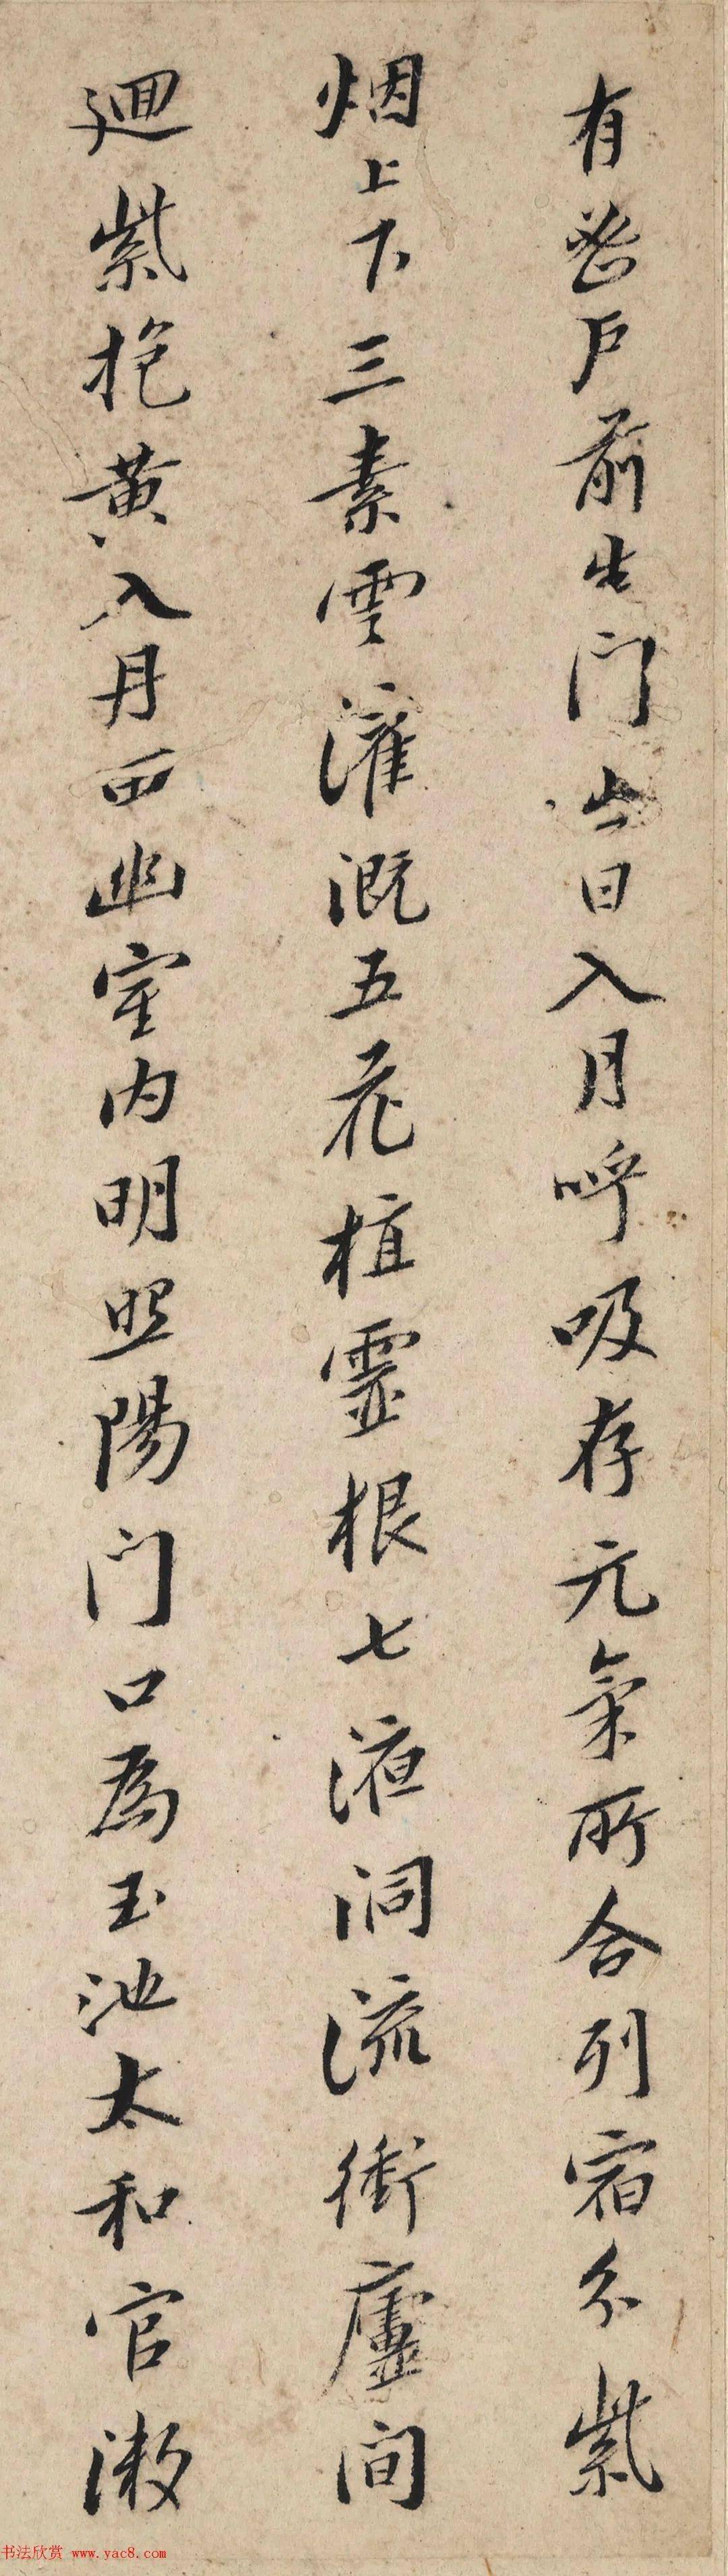 有密戶前生門出日入月呼吸存元氣所合列宿分紫
烟上下三素雲灌溉五花植靈根七液洞流衝廬間
迴紫抱黄入丹田幽室内明照陽門口為玉池太和官漱
书法欣赏 www.yac8.com